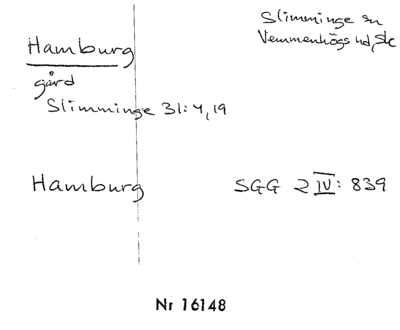 Slimminge sn
Vemmenhögs hd, Sk
Hamburg
gård
Slimminge 31:4,19
Hamburg SGG 2 IV: 839
Nr 16148